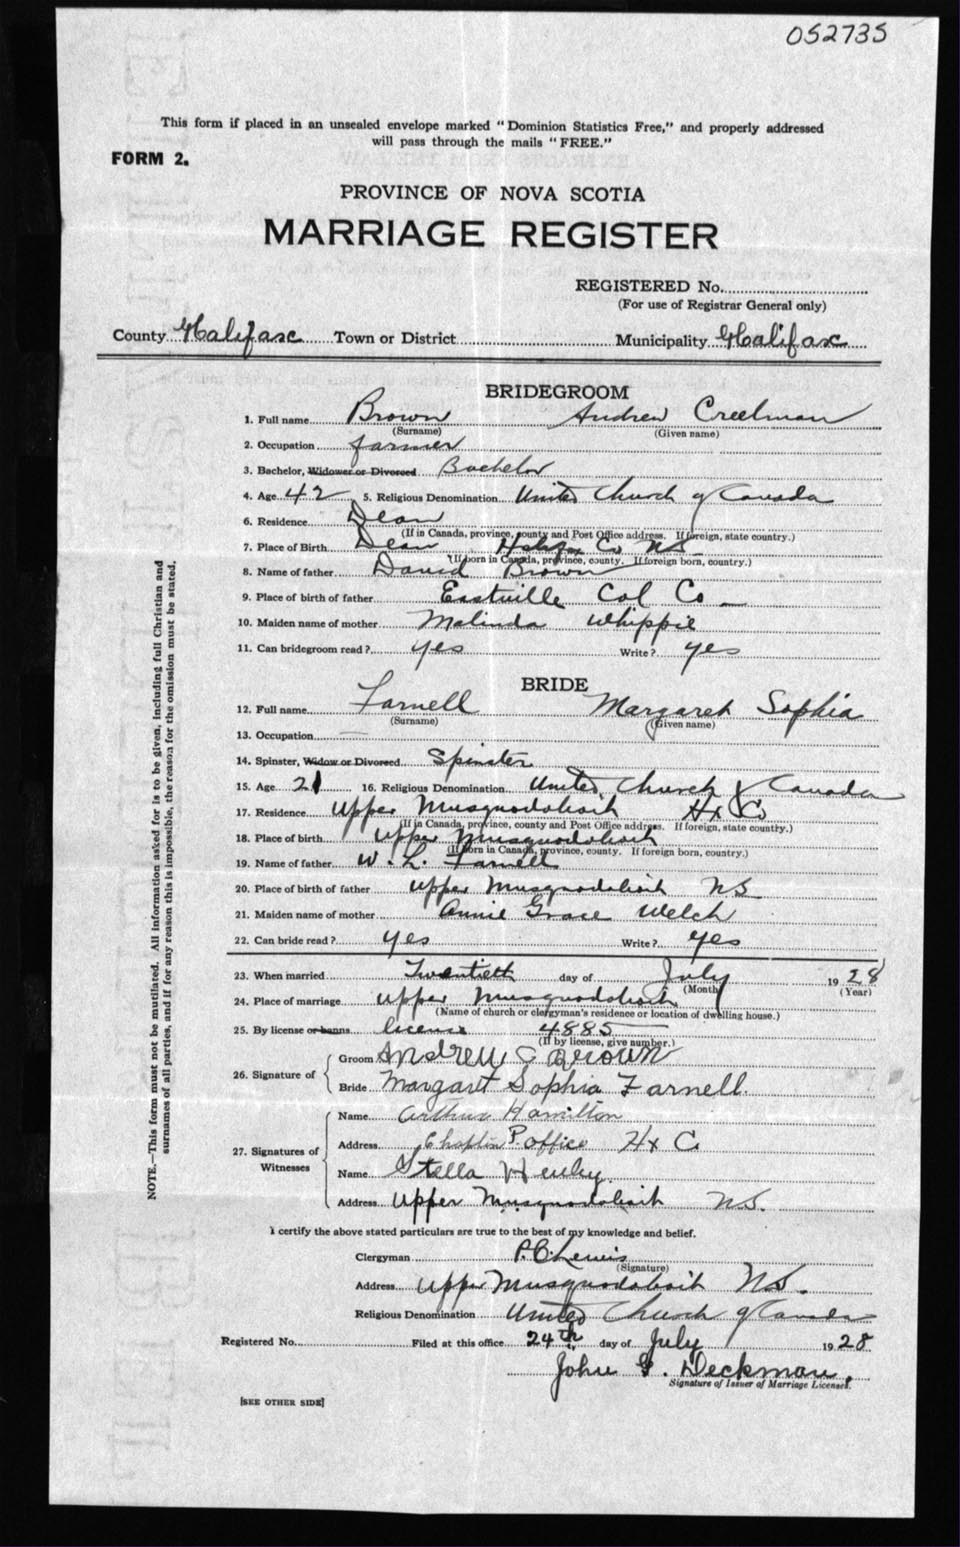 052735
This form if placed in an unsealed envelope marked "Dominion Statistics Free," and properly addressed
will pass through the mails "FREE."
FORM 2.
PROVINCE OF NOVA SCOTIA
MARRIAGE REGISTER
REGISTERED No.
(For use of Registrar General only)
County Halifax Town or District Municipality Halifax
BRIDEGROOM
1. Full name Brown Andrew Creelman
(Surname) (Given name)
2. Occupation farmer
3. Bachelor, Widower or Divorced Bachelor
4. Age 42 5. Religious Denomination United Church of Canada
6. Residence Dean
(If in Canada, province, county and Post Office address. If foreign, state country.)
7. Place of Birth Dean Halifax Co NS
(If born in Canada, province, county. If foreign born, country.)
8. Name of father David Brown
9. Place of birth of father Eastville Col Co
10. Maiden name of mother Malinda Whippie
11. Can bridegroom read? yes Write? yes
BRIDE
12. Full name Farnell Margaret Sophia
(Surname) (Given name)
13. Occupation —
14. Spinster, Widow or Divorced Spinster
15. Age 21 16. Religious Denomination United Church of Canada
17. Residence Upper Musquodoboit Hx Co
(If in Canada, province, county and Post Office address. If foreign, state country.)
18. Place of birth Upper Musquodoboit
(If born in Canada, province, county. If foreign born, country.)
19. Name of father W. L. Farnell
20. Place of birth of father Upper Musquodoboit NS
21. Maiden name of mother Annie Grace Welch
22. Can bride read? yes Write? yes
23. When married Twentieth day of July 1928
(Month) (Year)
24. Place of marriage Upper Musquodoboit
(Name of church or clergyman's residence or location of dwelling house.)
25. By license or banns license 4885
(If by license, give number.)
26. Signature of Groom Andrew C Brown
Bride Margaret Sophia Farnell.
27. Signatures of Witnesses
Name Arthur Hamilton
Address Chaplin P. office Hx Co
Name Stella Henley
Address Upper Musquodoboit NS.
I certify the above stated particulars are true to the best of my knowledge and belief.
Clergyman P.C. Lewis
(Signature)
Address Upper Musquodoboit NS.
Religious Denomination United Church of Canada
Registered No. Filed at this office 24th day of July 1928
John G. Deckman.
Signature of Issuer of Marriage Licenses.
[SEE OTHER SIDE]
NOTE.—This form must not be mutilated. All information asked for is to be given, including full Christian and
surnames of all parties, and if for any reason this is impossible, the reason for the omission must be stated.